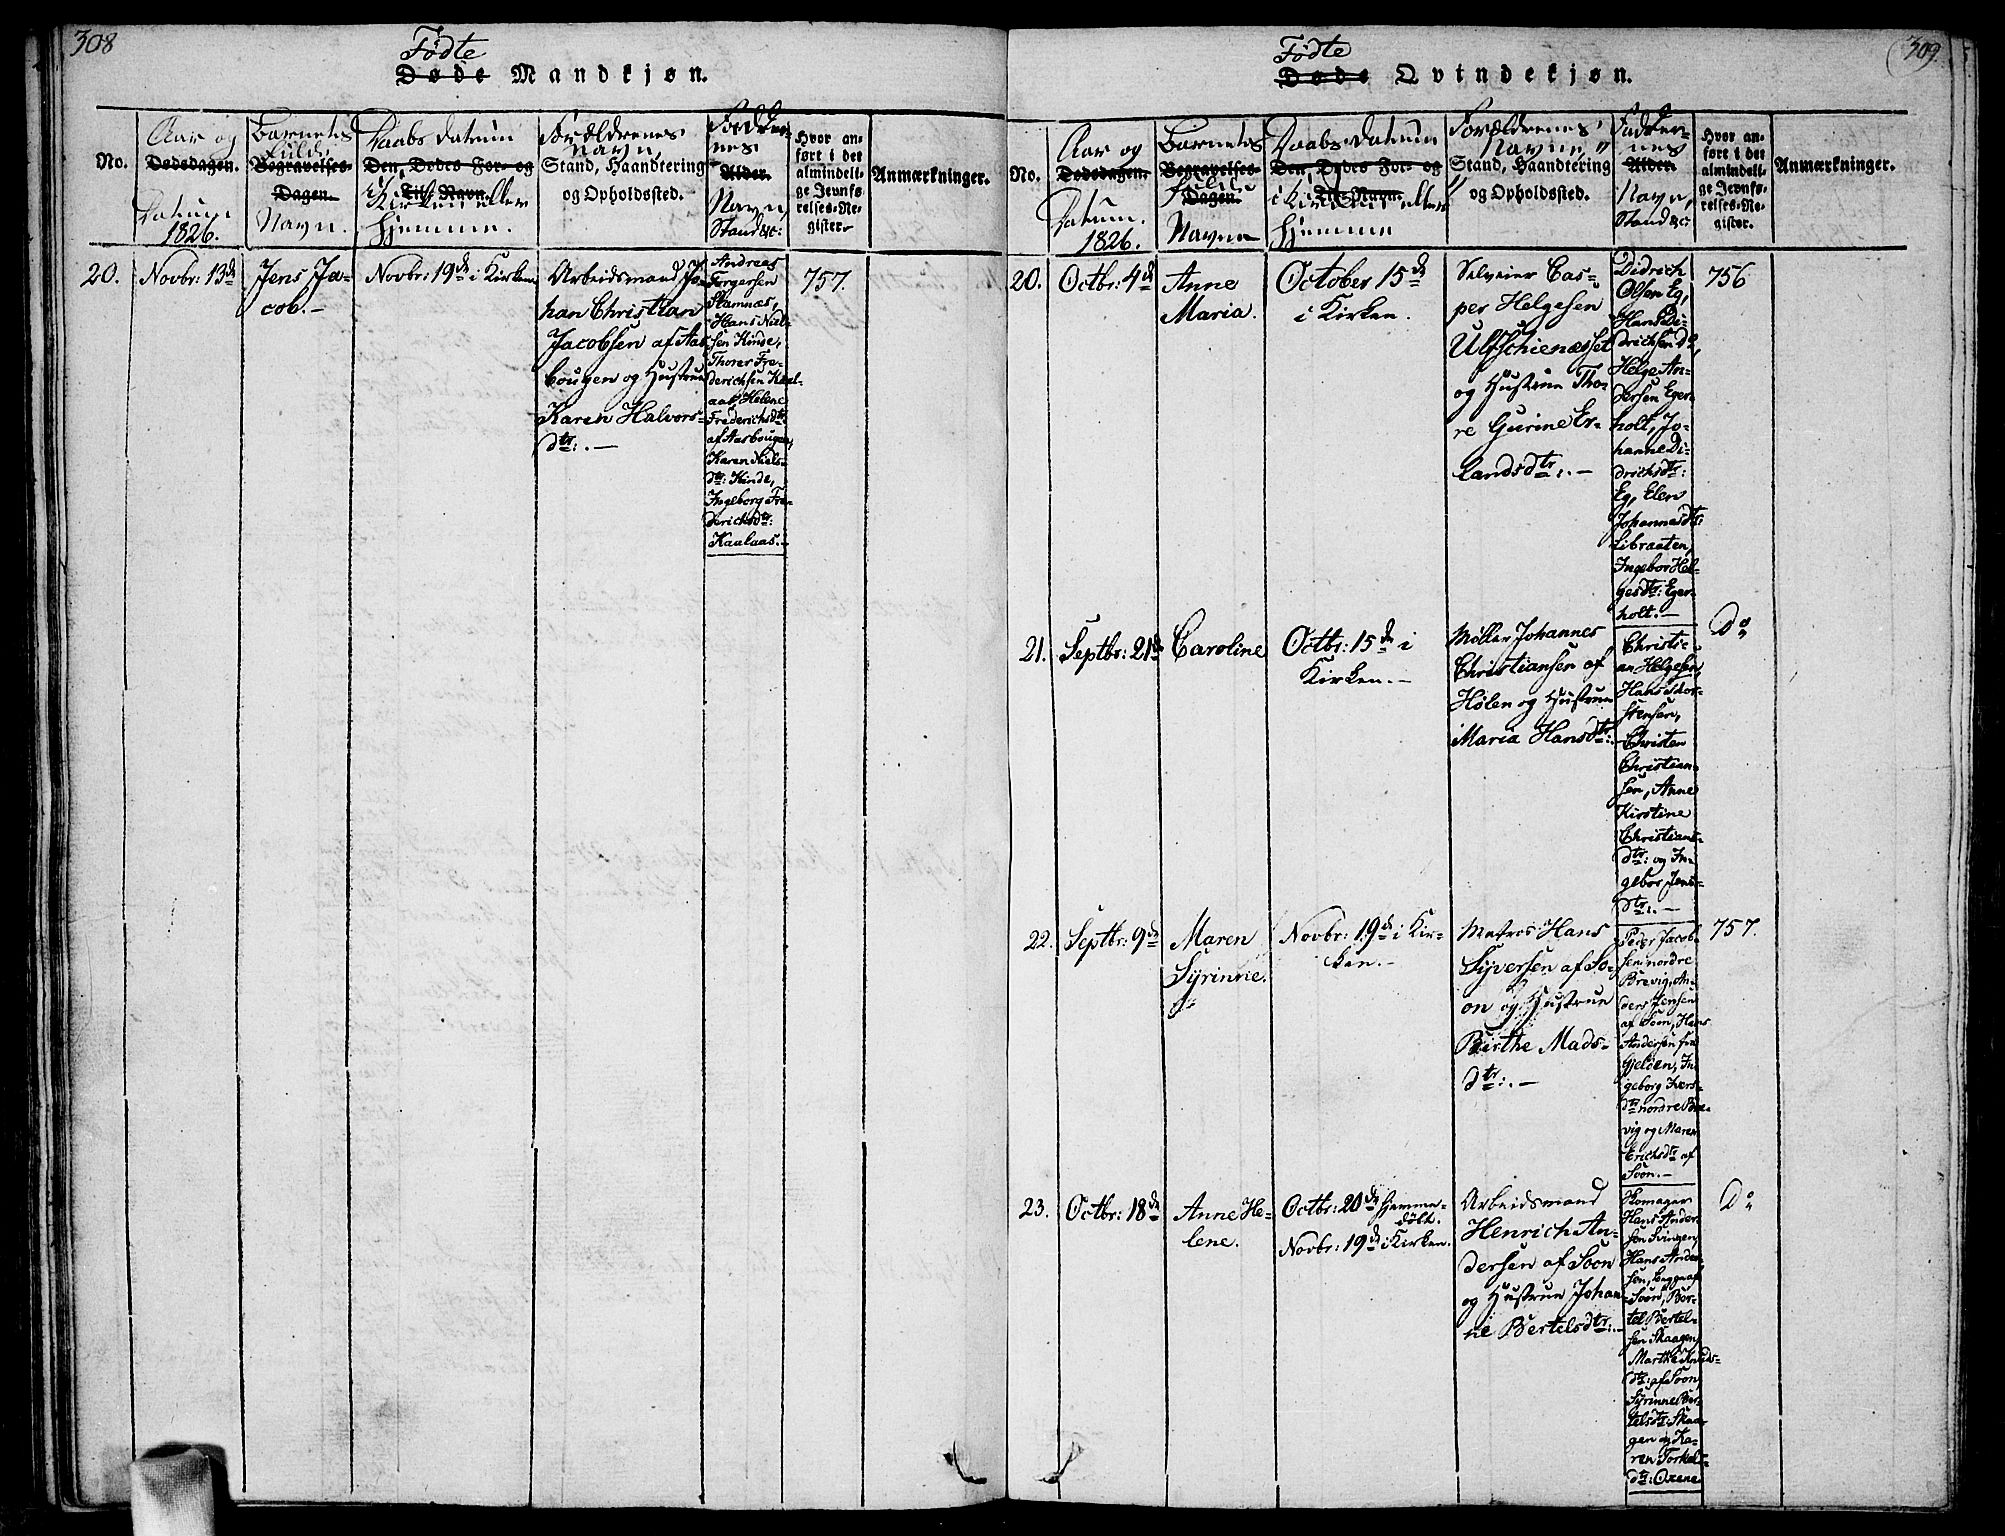 308
Fødte
Døde Mandkjøn.
No.
Aar og
Dødsdagen.
Datum
1826.
Barnets
fulde
Begravelses-
Dagen.
Navn.
Daabs Datum
Den Dødes For- og
Til-Navn.
i Kirken eller
Hjemme.
Forældrenes
Navn,
Stand, Haandtering
og Opholdssted.
Fadder-
nes
Alder.
Navn,
Stand &c:
Hvor an-
ført i det
almindeli-
ge Jevnfø-
relses-Re-
gister.
Anmærkninger.
20.
Novbr: 13de
Jens Ja-
cob.-
Novbr: 19de i Kirken
Arbeidsmand Jo-
han Christian
Jacobsen af Aas-
bougen og Hustrue
Karen Halvors-
dtr:.-
Andreas
Torgersen
Stamnæs,
Hans Niel-
sen Kinde,
Thorer Fre-
derichsen Kaal-
aas, Helene
Frederichsdtr:
af Aasbougen,
Karen Niels-
dtr: Kinde,
Ingeborg Fre-
derichsdtr:
Kaalaas.-
757.
309
Fødte
Døde Qvindekjøn.
No.
Aar og
Dødsdagen.
Datum.
1826.
Barnets
Begravelses-
fulde
Dagen.
Navne
Daabs Datum
Den Dødes For- og
Til-Navn.
i Kirken eller
Hjemme
Forældrenes
Navne,
Stand, Haandtering
og Opholdssted.
Fadder-
nes
Alder.
Navn,
Stand &c:
Hvor an-
ført i det
almindeli-
ge Jevnfø-
relses-Re-
gister.
Anmærkninger.
20.
Octbr: 4de
Anne
Maria.
October 15de
i Kirken.
Selveier Cas-
per Helgesen
Ulfschienæsset
og Hustrue Tho-
re Gurine Er-
landsdtr:.-
Didrich
Olsen Eg,
Hans Di-
drichsen do,
Helge An-
dersen Eger-
holt, Jo-
hanne Di-
drichsdtr:
Eg, Elen
Johannesdtr:
Libraaten,
Ingebor Hel-
gesdtr: Eger-
holt.-
756
21.
Septbr: 21de
Caroline
Octbr: 15de i
Kirken.-
Møller Johannes
Christiansen af
Hølen og Hustrue
Maria Hansdtr:.-
Christi-
an Helgesen,
Hans Tor-
stensen,
Christen
Christian-
sen, Anne
Kirstine
Christians-
dtr: og In-
gebor Jens-
dtr:.-
Do
22.
Septbr: 9de
Maren
Syrinne.
Novbr: 19de i Kir-
ken.-
Matros Hans
Syversen af So-
on og Hustrue
Birthe Mads-
dtr:.-
Peder Jacob-
sen nordre
Brevig, An-
ders Jensen
af Soon, Hans
Andersen fra
Gjelöen, In-
geborg Ivers-
dtr nordre Bre-
vig og Maren
Erichsdtr af
Soon.-
757.
23.
Octbr: 18de
Anne He-
lene.
Octbr: 20de hjemme-
døbt.
Novbr: 19de i Kirken.
Arbeidsmand
Henrich An-
dersen af Soon
og Hustrue Johan-
ne Bertelsdtr:.-
Skomager
Hans Ander-
sen Svingen,
Hans Ander-
sen, begge af
Soon, Ber-
tel Bertel-
sen Skaagen,
Marthe Knuds-
dtr: af Soon,
Syrinne Ber-
telsdtr: Skaa-
gen og Ka-
ren Torkels-
dtr: Oxene
Do